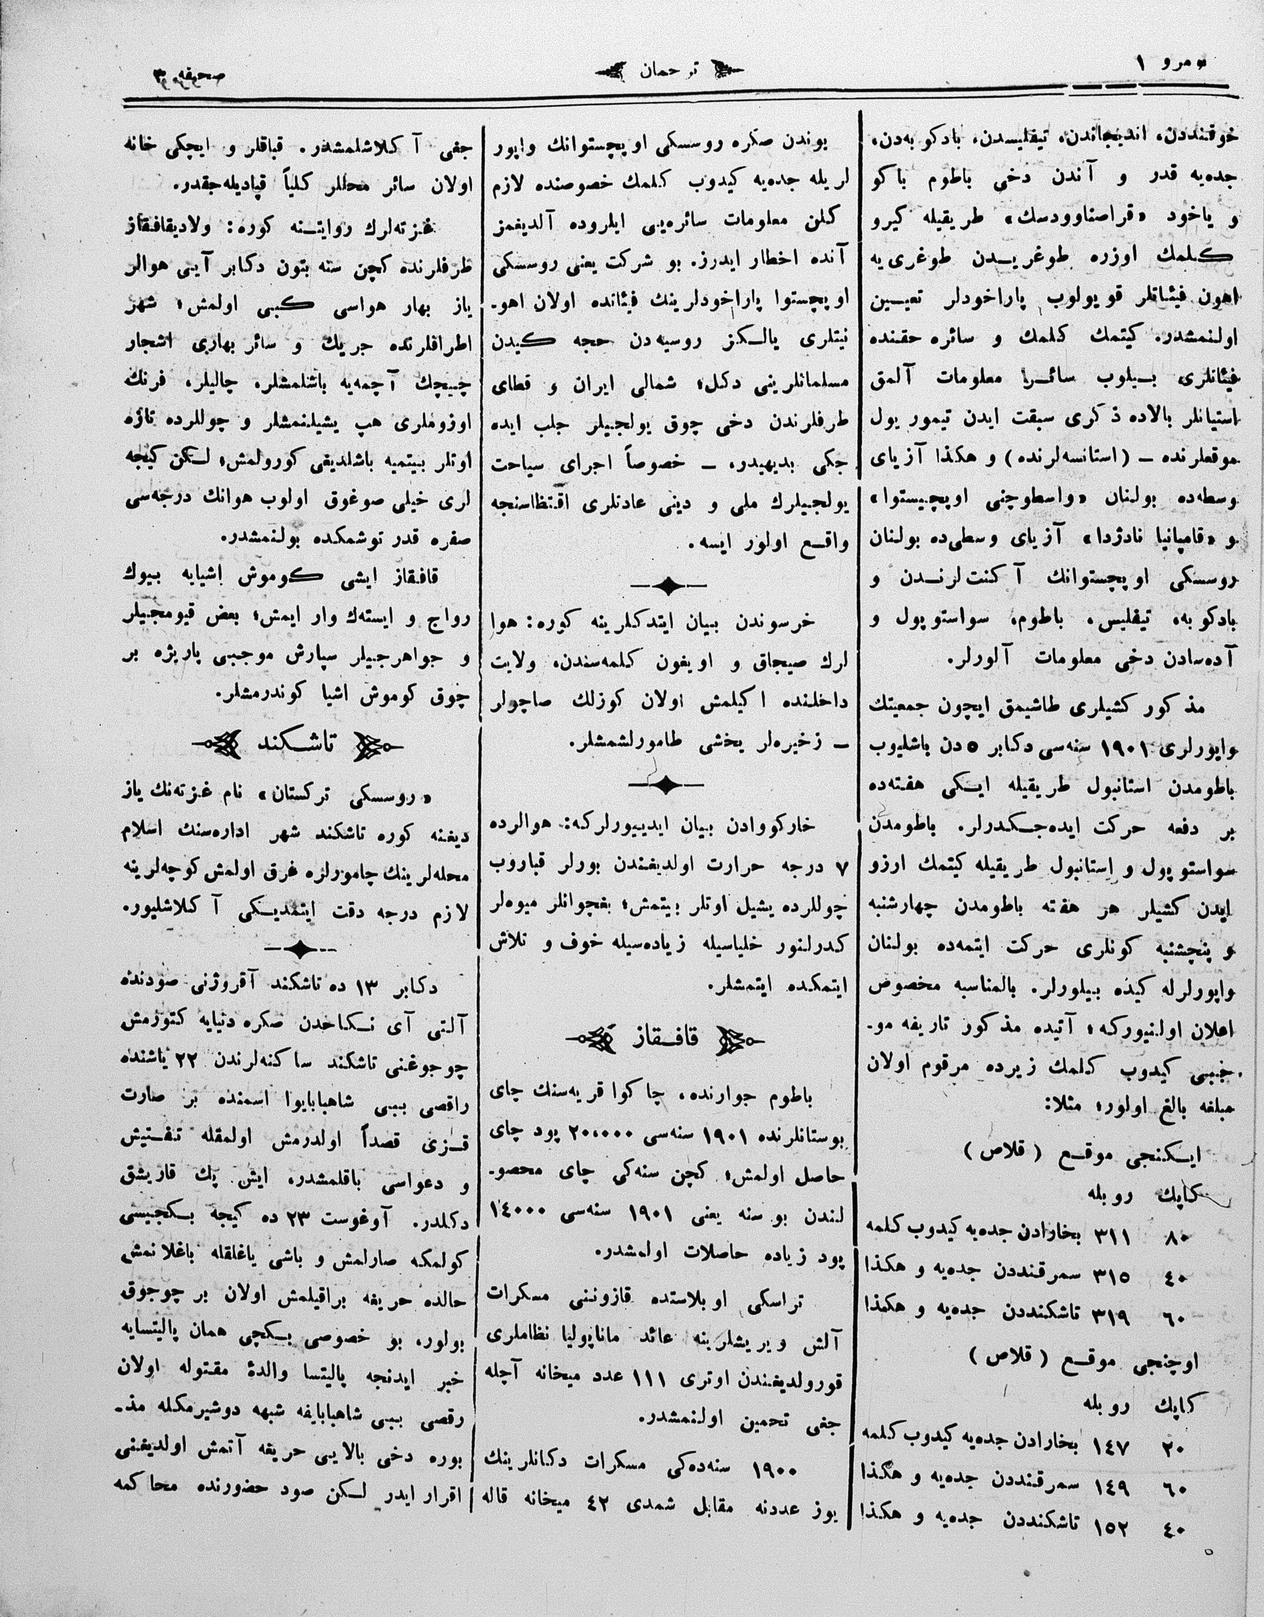 نومرو ١
ترجمان
صحیفه ٣
خوقنددن، اندیجاندن، تیفلیسدن، بادکوبه‌دن،
جده‌یه قدر و آندن دخی باطوم باکو
و یاخود «قراصناوودسك» طریقیله کیرو
کلمك اوزره طوغریدن طوغری‌یه
اهون فیئاتلر قویولوب پاراخودلر تعیین
اولنمشدر. کیتمك کلمك و سائره حقنده
فیئاتلری بیلوب سائرا معلومات آلمق
استیانلر بالاده ذکری سبقت ایدن تیمور یول
موقعلرنده — (استانسه‌لرنده) و هکذا آزیای
وسطه‌ده بولنان «واسطوچنی اوپچیستوا»
و «قامپانیا نادژدا» آزیای وسطی‌ده بولنان
روسسکی اوپچستوانك آکنت‌لرندن و
بادکوبه، تیفلیس، باطوم، سواستوپول و
آده‌سادن دخی معلومات آلورلر.
مذکور کشیلری طاشیمق ایچون جمعیتك
واپورلری ١٩٠١ سنه‌سی دکابر ٥ دن باشلیوب
باطومدن استانبول طریقیله ایکی هفته‌ده
بر دفعه حرکت ایده‌جکدرلر. باطومدن
سواستوپول و استانبول طریقیله کیتمك ارزو
ایدن کشیلر هر هفته باطومدن چهارشنبه
و پنچشنبه کونلری حرکت ایتمه‌ده بولنان
واپورلرله کیده بیلورلر. بالمناسبه مخصوص
اعلان اولنیورکه؛ آتیده مذکور تاریفه مو-
جبی کیدوب کلمك زیرده مرقوم اولان
مبلغه بالغ اولور؛ مثلا:
ایکنجی موقع (قلاص)
کاپك روبله
٨٠ ٣١١ بخارادن جده‌یه کیدوب کلمه
٤٠ ٣١٥ سمرقنددن جده‌یه و هکذا
٦٠ ٣١٩ تاشکنددن جده‌یه و هکذا
اوچنجی موقع (قلاص)
کاپك روبله
٢٠ ١٤٧ بخارادن جده‌یه کیدوب کلمه
٦٠ ١٤٩ سمرقنددن جده‌یه و هکذا
٤٠ ١٥٢ تاشکنددن جده‌یه و هکذا
بوندن صکره روسسکی اوپچستوانك واپور
لریله جده‌یه کیدوب کلمك خصوصنده لازم
کلن معلومات سائره‌یی ایلروده آلدیغمز
آنده اخطار ایدرز. بو شرکت یعنی روسسکی
اوپچستوا پاراخودلرینك فیئانده اولان اهو-
نیتلری یالکز روسیه‌دن حجه کیدن
مسلمانلرینی دکل؛ شمالی ایران و قطای
طرفلرندن دخی چوق یولجیلر جلب ایده
جکی بدیهیدر، — خصوصاً اجرای سیاحت
یولجیلرك ملی و دینی عادتلری اقتظاسنجه
واقع اولور ایسه.
خرسوندن بیان ایتدکلرینه کوره: هوا
لرك صیجاق و اویغون کلمه‌سندن، ولایت
داخلنده اکیلمش اولان کوزلك صاچولر
— زخیره‌لر یخشی طامورلشمشلر.
خارکووادن بیان ایدییورلرکه: هوالرده
٧ درجه حرارت اولدیغندن بورلر قباروب
چوللرده یشیل اوتلر بیتمش؛ بغچوانلر میوه‌لر
کدرلنور خلیاسیله زیاده‌سیله خوف و تلاش
ایتمکده ایتمشلر.
قافقاز
باطوم جوارنده، چاکوا قریه‌سنك چای
بوستانلرنده ١٩٠١ سنه‌سی ٢٠،٠٠٠ پود چای
حاصل اولمش؛ کچن سنه‌کی چای محصو-
لندن بو سنه یعنی ١٩٠١ سنه‌سی ١٤٠٠٠
پود زیاده حاصلات اولمشدر.
تراسکی اوبلاستده قازوننی مسکرات
آلش ویریشلرینه عائد ماناپولیا نظاملری
قورولدیغندن اوتری ١١١ عدد میخانه آچله
جغی تحمین اولنمشدر.
١٩٠٠ سنه‌ده‌کی مسکرات دکانلرینك
یوز عددنه مقابل شمدی ٤٢ میخانه قاله
جغی آکلاشلمشدر. قباقلر و ایچکی خانه
اولان سائر محللر کلیاً قپادیله‌جقدر.
غزته‌لرك روایتنه کوره: ولادیقافقاز
طرفلرنده کچن سنه بتون دکابر آیی هوالر
یاز بهار هواسی کبی اولمش؛ شهر
اطرافلرنده جریك و سائر بهاری اشجار
چیچك آچمه‌یه باشلمشلر، چالیلر، فرنك
اوزوملری هپ یشیلنمشلر و چوللرده تازه
اوتلر بیتمیه باشلدیغی کورولمش؛ لکن کیجه
لری خیلی صوغوق اولوب هوانك درجه‌سی
صفره قدر توشمکده بولنمشدر.
قافقاز ایشی کوموش اشیایه بیوك
رواج و ایسته‌ك وار ایمش؛ بعض قیومجیلر
و جواهرجیلر سپارش موجبی پاریژه بر
چوق کوموش اشیا کوندرمشلر.
تاشکند
«روسسکی ترکستان» نام غزته‌نك یاز
دیغنه کوره تاشکند شهر اداره‌سنك اسلام
محله‌لرینك چامورلره غرق اولمش کوچه‌لرینه
لازم درجه دقت ایتمدیکی آکلاشلیور.
دکابر ١٣ ده تاشکند آقروژنی صودنده
آلتی آی نکاحدن صکره دنیایه کتورمش
چوجوغنی تاشکند ساکنه‌لرندن ٢٢ یاشنده
راقصی بیبی شاهبابایوا اسمنده بر صارت
قزی قصداً اولدرمش اولمقله تفتیش
و دعواسی باقلمشدر، ایش پك قاریشق
دکلدر. آوغوست ٢٣ ده کیجه بکجیسی
کولمکه صارلمش و باشی یاغلقله باغلانمش
حالده حریفه براقیلمش اولان بر چوجوق
بولور، بو خصوصی بکچی همان پالیتسایه
خبر ایدنجه پالیتسا والدهٔ مقتوله اولان
رقصی بیبی شاهبابایفه شبهه دوشیرمکله مذ-
بوره دخی بالایی حریفه آتمش اولدیغنی
اقرار ایدر لکن صود حضورنده محاکمه